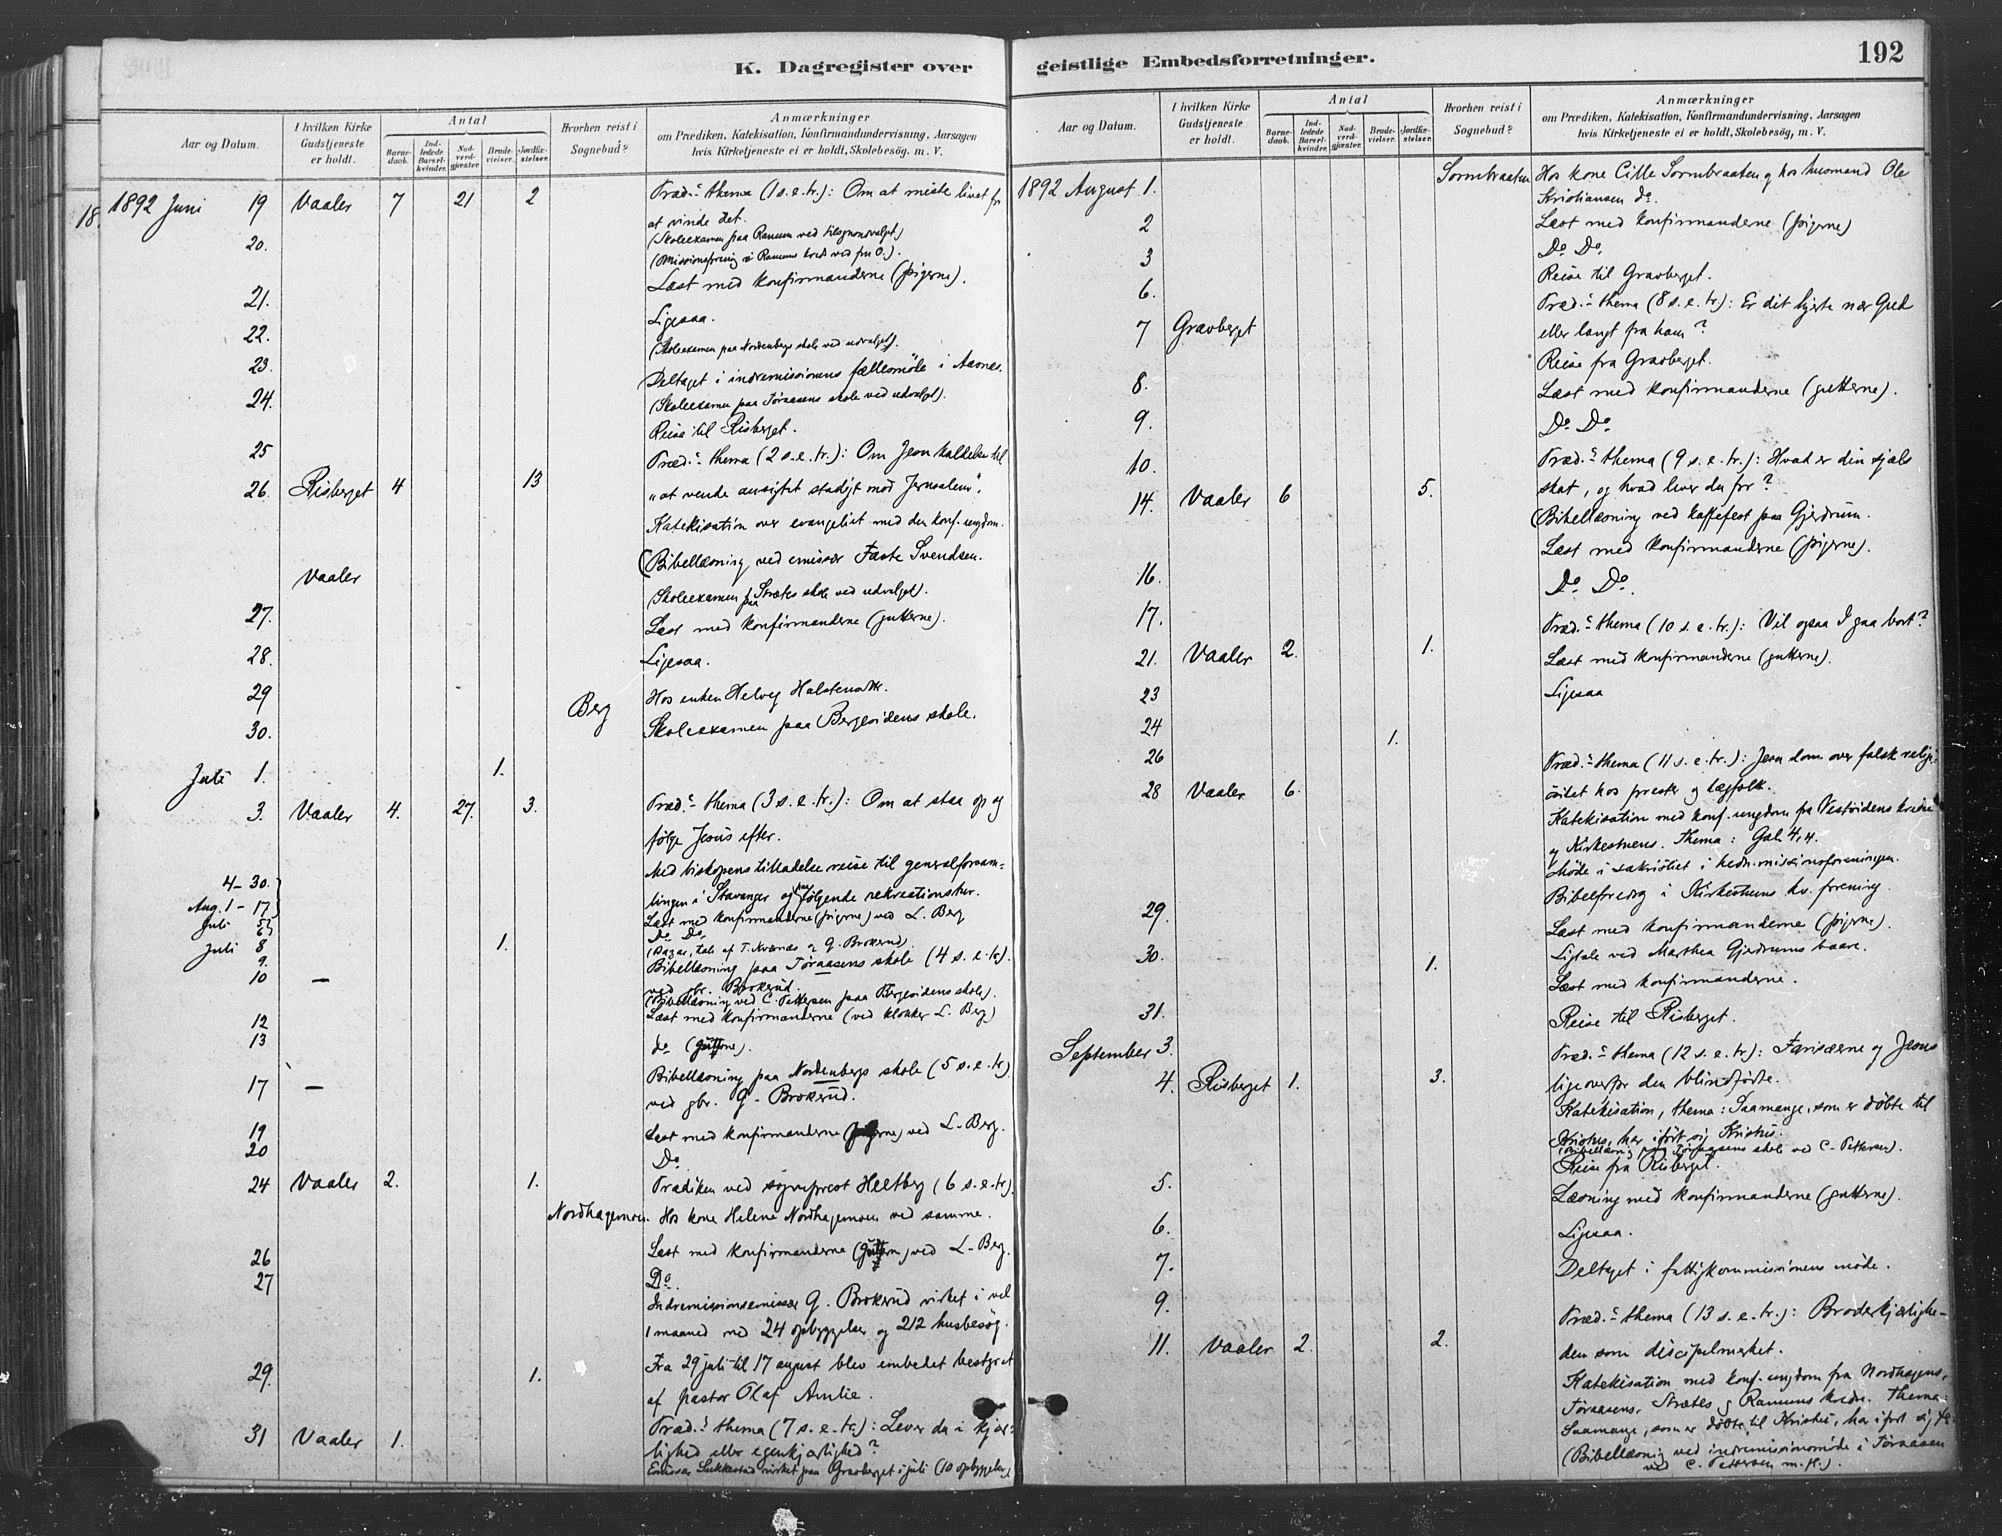 K. Dagregister over
geistlige Embedsforretninger.
192
Aar og Datum.
I hvilken Kirke Gudstjeneste er holdt.
Antal
Barnedaab.
Indledede Barselkvinder.
Nadverdgjæster.
Brudevielser.
Jordfæstelser.
Hvorhen reist i Sognebud?
Anmærkninger
om Prædiken, Katekisation, Konfirmandundervisning, Aarsagen
hvis Kirketjeneste ei er holdt, Skolebesög. m. V.
18.
1892 Juni 19 Vaaler 7 21 2 Præd.s thema (1 s. e. tr.): Om at miste livet for
at vinde det.
20. (Skoleexamen paa Ramum ved tilsynsudvalget)
(Missionsforening i Ramums kreds ved fru O.).
Læst med konfirmanderne (pigerne).
21. Ligesaa.
22. (Skoleexamen paa Nordenbergs skole ved udvalget).
23. Deltaget i indremissionens fællesmöde i Aasnes.
24. (Skoleexamen paa Töraasens skole ved udvalget).
25 Reise til Risberget.
26. Risberget 4 13 Præd.s thema (2 s. e. tr.): Om Jesu kaldelse til
"at vende ansigtet stadigt mod Jerusalem".
Katekisation over evangeliet med den konf. ungdom.
Vaaler (Bibellæsning ved emissær Faste Svendsen.
27. Skoleexamen paa Stræts skole ved udvalget).
Læst med konfirmanderne (gutterne).
28. Ligesaa.
29 Berg Hos enken Helvig Halstensdtr.
30. Skoleexamen paa Bergesidens skole.
Juli 1. 1.
3. Vaaler 4. 27. 3. Præd.s thema (3 s. e. tr.): Om at staa op og
fölge Jesus efter.
4–30. Med biskopens tilladelse reise til generalforsam-
Aug. 1–17 lingen i Stavanger og paafölgende rekreationstur.
Juli 5 Læst med konfirmanderne (pigerne) ved L. Berg
6 Do Do
Juli 8 1.
9. (Bazar, tale af T. Kværnæs og G. Brokerud)
10 – Bibellæsning paa Töraasens skole (4 s. e. tr).
ved gbr. Brokerud.
(Bibellæsning ved C. Pettersen paa Bergesidens skole).
12 Læst med konfirmanderne (ved klokker L. Berg)
13 do (gutterne).
17 – Bibellæsning paa Nordenbergs skole (5 s. e. tr)
ved gbr. G. Brokerud.
19 Læst med konfirmanderne (pigerne) ved L. Berg.
20 Do
24 Vaaler 2. 1. Prædiken ved sogneprest Heltberg (6 s. e. tr).
Nordhagemoen. Hos kone Helene Nordhagemoen ved samme.
26 Læst med konfirmanderne (gutterne) ved L. Berg.
27 Do.
Indremissionsemissær G. Brokerud virket i vel
1 maaned med 24 opbyggelser og 212 husbesög.
29. 1. Fra 29 juli til 17 august blev embedet bestyret
af pastor Olaf Amlie.
31 Vaaler 1. Præd.s thema (7 s. e. tr.): Lever du i kjær-
lighed eller egenkjærlighed?
Emissær Sukkestad virket paa Gravberget i juli (10 opbyggelser)
Aar og Datum.
I hvilken Kirke Gudstjeneste er holdt.
Antal
Barnedaab.
Indledede Barselkvinder.
Nadverdgjæster.
Brudevielser.
Jordfæstelser.
Hvorhen reist i Sognebud?
Anmærkninger
om Prædiken, Katekisation, Konfirmandundervisning, Aarsagen
hvis Kirketjeneste ei er holdt, Skolebesög, m. V.
1892 August 1. Sormbraaten Hos kone Cille Sormbraaten og hos husmand Ole
Kristiansen do.
2 Læst med konfirmanderne (pigerne)
3 Do Do
6. Reise til Gravberget.
7 Gravberget Præd.s thema (8 s. e. tr.): Er dit hjerte nær Gud
eller langt fra ham?
8. Reise fra Gravberget.
9. Læst med konfirmanderne (gutterne).
10. Do Do
14. Vaaler 6 5. Præd.s thema (9 s. e. tr.): Hvad er din sjæls
skat, og hvad lever du for?
(Bibellæsning ved kaffefest paa Gjerdrum.
16. Læst med konfirmanderne (pigerne).
17. Do Do.
21. Vaaler 2. 1. Præd.s thema (10 s. e. tr.): Vil ogsaa I gaa bort?
23 Læst med konfirmanderne (gutterne).
24 Ligesaa
26 1.
28 Vaaler 6. Præd.s thema (11 s. e. tr.): Jesu dom over falsk religi-
ösitet hos prester og lægfolk.
Katekisation med konf. ungdom fra Vestsidens kredse
og Kirkestuens. Thema: Gal. 4,4.
Möde i sakristiet i hedn.missionsforeningen.
29. Bibelforedrag i Kirkestuens kv. forening.
30. Læst med konfirmanderne (pigerne).
1. Ligtale ved Marthea Gjerdrums baare.
31. Læst med konfirmanderne.
September 3. Reise til Risberget.
4. Risberget 1. 3. Præd.s thema (12 s. e. tr): Farisæerne og Jesus
ligeoverfor den blindfödte.
Katekisation, thema: Saamange, som er döbte til
Kristus, har ifört sig Kristus.
(Bibellæsning paa Töraasens skole ved C. Pettersen).
5. Reise fra Risberget.
6. Læsning med konfirmanderne (gutterne).
7. Ligesaa.
9. Deltaget i fattigkommissionens möde.
11. Vaaler 2. 2. Præd.s thema (13 s. e. tr.): Broderkjærlighe-
den som discipelmærket.
Katekisation med konf. ungdom fra Nordhagens,
Töraasens, Stræts og Ramums kredse. Thema:
Saamange, som er döbte til Kristus, har ifört sig Kr.
(Bibellæsning ved indremissionsmöde i Töraasen
ved C. Pettersen m. fl.).